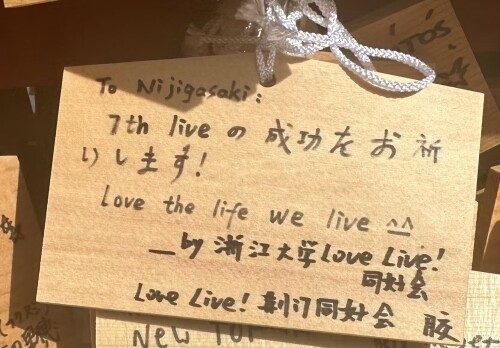 To Nijigasaki:
7th live の成功をお祈
りします!
Love the life we live ^^
—by 浙江大学Love Live!
同好会
Love Live! 荆门同好会
New